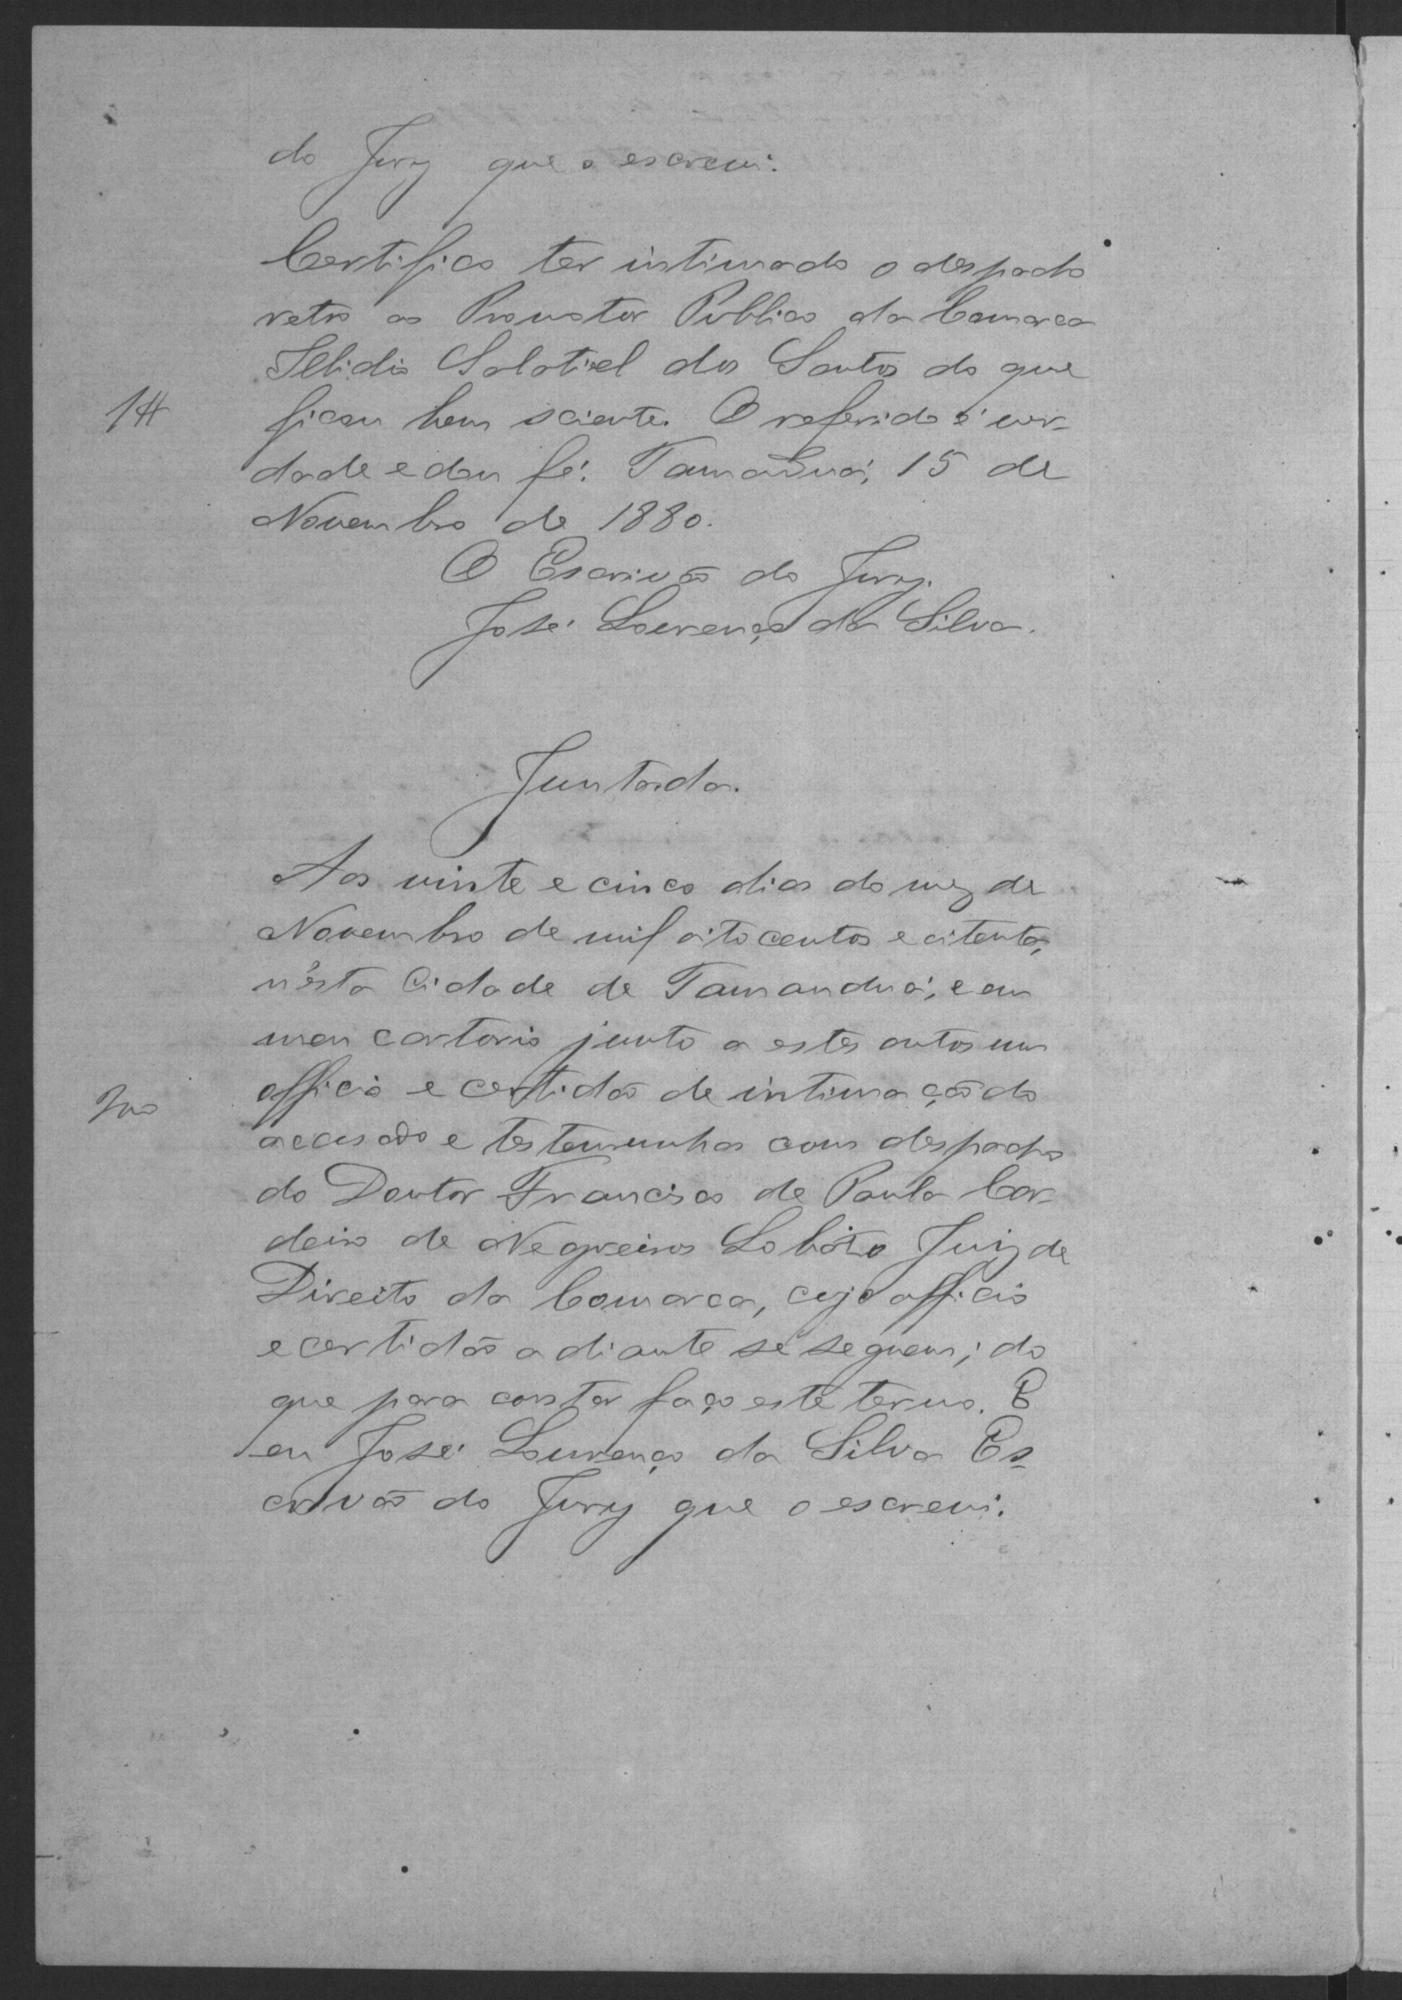 do Jury que o escrevi.
Certifico ter intimado o despacho
retro ao Promotor Publico da Comarca
Salatiel dos Santos do que
1#
ficou bem sciente. O referido é ver-
dade e dou fé. Tamanduá, 15 de
Novembro de 1880.
O Escrivão do Jury.
José Lourenço da Silva.
Juntada.
Aos vinte e cinco dias do mez de
Novembro de mil oito centos e oitenta,
n'esta Cidade de Tamanduá, e em
meu cartorio junto a estes autos um
officio e certidão de intimação do
accusado e testemunhas com despacho
do Doutor Francisco de Paula Cor-
deiro de Negreiros Lobato Juiz de
Direito da Comarca, cujo officio
e certidão adiante se seguem; do
que para constar faço este termo. E
eu José Lourenço da Silva Es-
crivão do Jury que o escrevi.